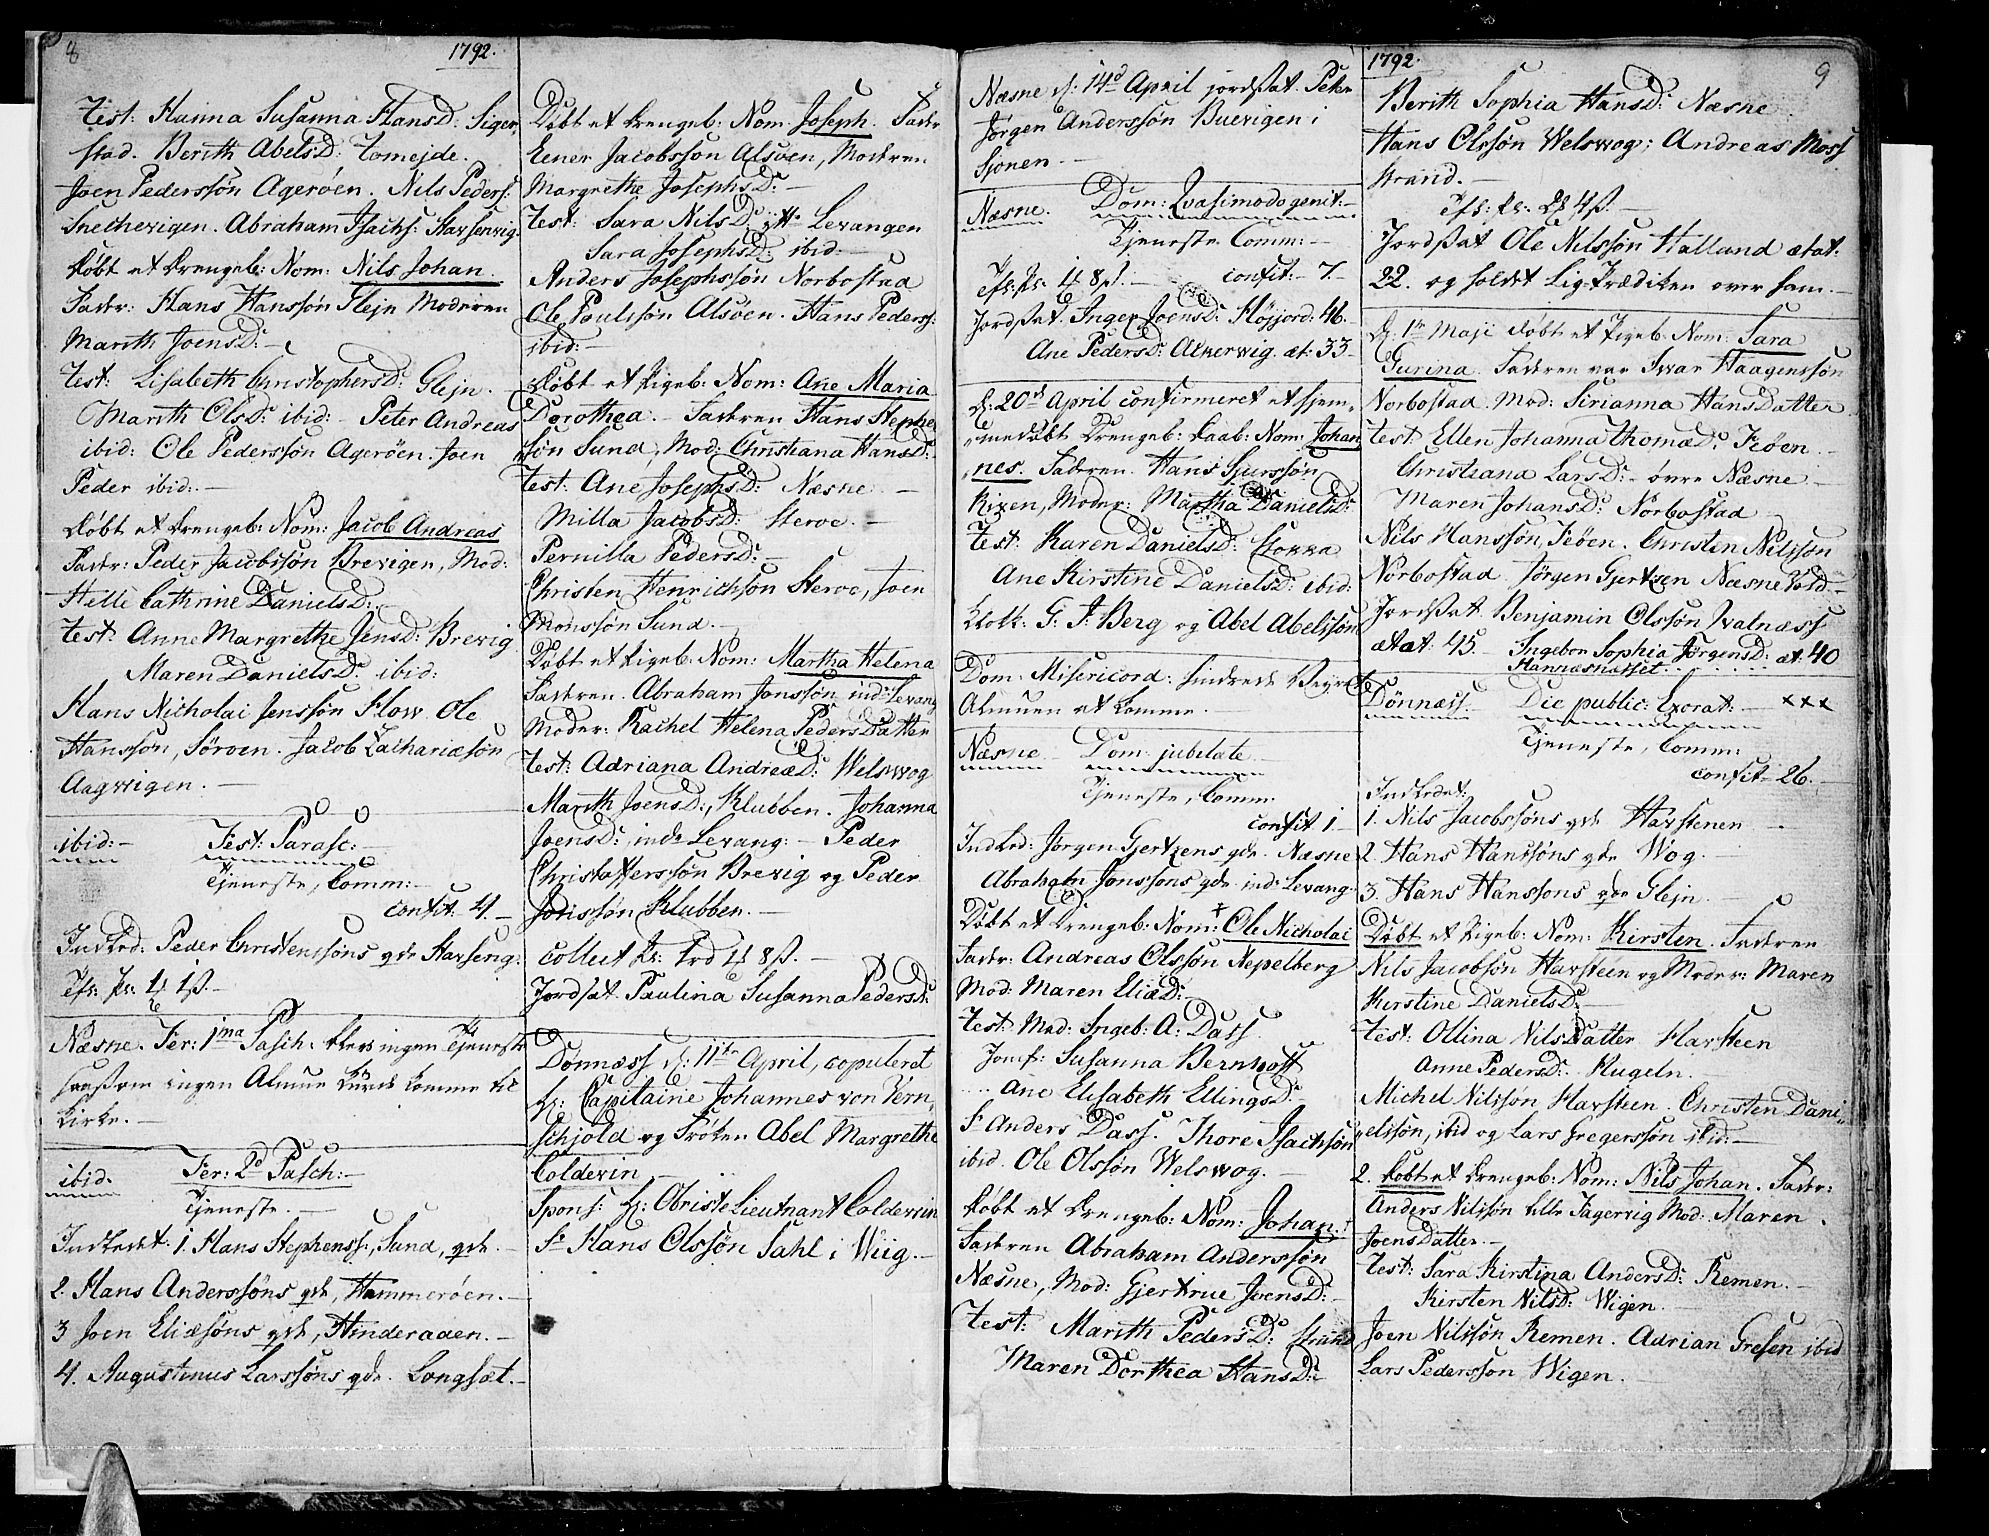 8
1792.
Test: Hanna Susanna HansD: Siger,
stad. Berith AbelsD: Tomejde.
Joen Pederssön Ageröen. Nils Peders:
Snechevigen. Abraham Isachs: Havsenvig.
Döbt et Drengeb: Nom: Nils Johan.
Fader: Hans Hanssön Glejn Moderen
Marith JoensD:
Test: Lisabeth ChristophersD: Glejn.
Marith OlsD: ibid: Peter Andreas
ibid: Ole Pederssön Ageröen. Joen
Peder ibid:
Döbt et Drengeb: Nom: Jacob Andreas
Fader: Peder Jacobssön Brevigen, Mod:
Helle Cathrine DanielsD:
Test: Anne Margrethe JensD: Brevig
Maren DanielsD: ibid:
Hans Nicholai Jenssön Flow. Ole
Hanssön, Söroen. Jacob Zachariæsön
Aagvigen.
ibid: Fest: Parasc:
Tjeneste, Comm:
confit: 4.
Indled: Peder Christenssöns qde Havseng:
Tfl: Pr: 4 1ß.
Næsne. Fer: 1ma Pasch: blev ingen Tjeneste
saasom ingen Almue kunde komme til
Kirke.
ibid. Fer: 2d Pasch:
Tjeneste.
Indledet: 1. Hans Stephenss:, Sund, qde.
2. Hans Anderssöns qde, Hammeröen.
3 Joen Eliæsöns qde, Hinderaaen.
4. Augustinus Larssöns qde. Longsæt.
Döbt et Drengeb: Nom: Joseph. Fader
Eener Jacobssön Alsöen, Moderen
Margrethe JosephsD:
Test: Sara NilsD: ytt: Levangen
Sara JosephsD: ibid:
Anders Josephssön Norbostad
Ole Poulssön Alsöen. Hans Peders:
ibid:
Döbt et Pigeb: Nom: Ane Maria
Dorothea. Faderen Hans Stephe
sön Sund, Mod: Christiana HansD:
Test: Ane JosephsD: Næsne
Milla JacobsD: Steroe.
Pernilla PedersD:
Christen Henrichsön Steroe, Joen
Monssön Sund.
Döbt et Pigeb: Nom: Martha Helena
Faderen. Abraham Jonssön ind: Levang
Moder: Rachel Helena PedersDatter
Test: Adriana AndreæD: Welsvog
Marith JoensD:, Klubben. Johanna
JoensD: inde Levang: Peder
Christopherssön Brevig og Peder
Jonssön Klubben.
collect Pr: Trd 4 8ß.
Jordfæt Paulina Susanna PedersD:
Dönnæss d: 11te April, copuleret
Hr: Capitaine Johannes von Vern,
schjold og Fröken Abel Margrethe
Coldevin
Spons: Hr: Obriste Lieutnant Coldevin
Sr Hans Olssön Dahl i Wiig.
Næsne d: 14d April jordfæt Peter
Jörgen Anderssön Buevigen i
Sjonen.
Næsne. Dom: Qvasimodogenit:
Tjeneste Comm:
Tfl: Pr: 4 8ß. confit: 7.
Jordfæt Inger JoensD: Höjjord: 46.
Ane PedersD: Alkervig. æt: 33
d: 20d April confirmeret et hjem,
medöbt Drengeb: Daab: Nom: Johan
nes. Faderen. Hans Sjurssön
Rixen, Moder: Martha DanielsD:
Test: Karen DanielsD: Stokka
Ane Kirstine DanielsD: ibid:
Klokk: G. F. Berg og Abel Abelssön
Dom: Misericord: hindrede Vejret
Almuen at komme.
Næsne Dom: jubilate
Tjeneste, Comm:
confit: 1
Indled: Jörgen Gjertzens qde. Næsne
Abraham Jonssons qde ind: Levang
Döbt et Drengeb: Nom: Ole Nicholai
Fader: Andreas Olssön Nepelberg
Mod: Maren EliæD:
Test: Mad: Ingeb: A: Dass
Jomf: Susanna Bernhoft
Ane Elisabeth EllingsD:
Sr Anders Dass. Thore Isachsön
ibid. Ole Olssön Welsvog.
Döbt et Drengeb: Nom: Johan
Faderen Abraham Anderssön
Næsne, Mod: Gjertrue JoensD:
Test: Marith PedersD: Strand
Maren Dorthea HansD:
1792.
9
Berith Sophia HansD: Næsne
Hans Olssön Welsvog; Andreas Moss
Strand.
Tfl: Pr: 28 4ß.
Jordfæt Ole Nilssön Halland ætat:
22. og holdt Lig-Prædiken over ham.
d: 1te Maji döbt et Pigeb: Nom: Sara
Gurina. Faderen var Iwar Haagenssön
Norbostad. Mod: Sirianna HansDatter.
Test: Ellen Johanna ThomæD: Feöen.
Christiana LarsD: övre Næsne.
Maren JohansD: Norbostad
Nils Hanssön, Feöen. Christen Nilssön
Norbostad Jörgen Gjertzen Næsne Vold
Jordfæt Benjamin Olssön Kalnæss
ætat: 45. Ingebor Sophia JörgensD: æt: 40
Hannæsnæsset.
Dönnæss Die public: Exorat: xxx
Tjeneste, Comm:
confit: 26.
Indledet:
1. Nils Jacobssöns qde Havstenen
2. Hans Hanssöns qde Wog.
3. Hans Hanssöns qde Glejn.
Döbt et Pigeb: Nom: Kirsten. Faderen
Nils Jacobsön Havsteen og Moder: Maren
Kirstine DanielsD:
Test: Ollina NilsDatter Havsteen
Anne PedersD: Kugeln.
Michel Nilssön Havsteen. Christen Dani
elssön, ibid og Lars Gregerssön ibid:
2. Döbt et Drengeb: Nom: Nils Johan. Fader:
Anders Nilssön lille Fagervig Mod: Maren
JoensDatter.
Test: Sara Kirstina AndersD: Remen.
Kirsten NilsD: Wigen.
Joen Nilssön Remen. Adrian Gresen ibid
Lars Pederssön Wigen.